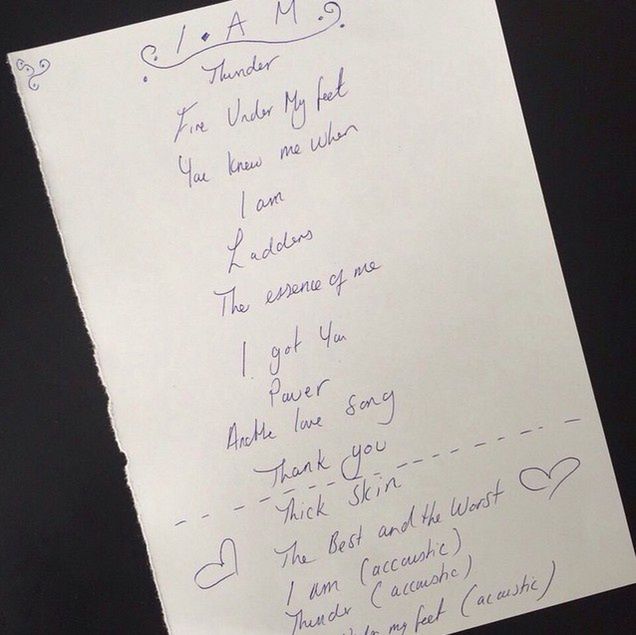 I. A M
Thunder
Fire Under My feet
You knew me when
I am
Ladders
The essence of me
I got You
Power
Another love song
Thank you
Thick Skin
The Best and the Worst
I am (accoustic)
Thunder (accaustic)
my feet (acaustic)